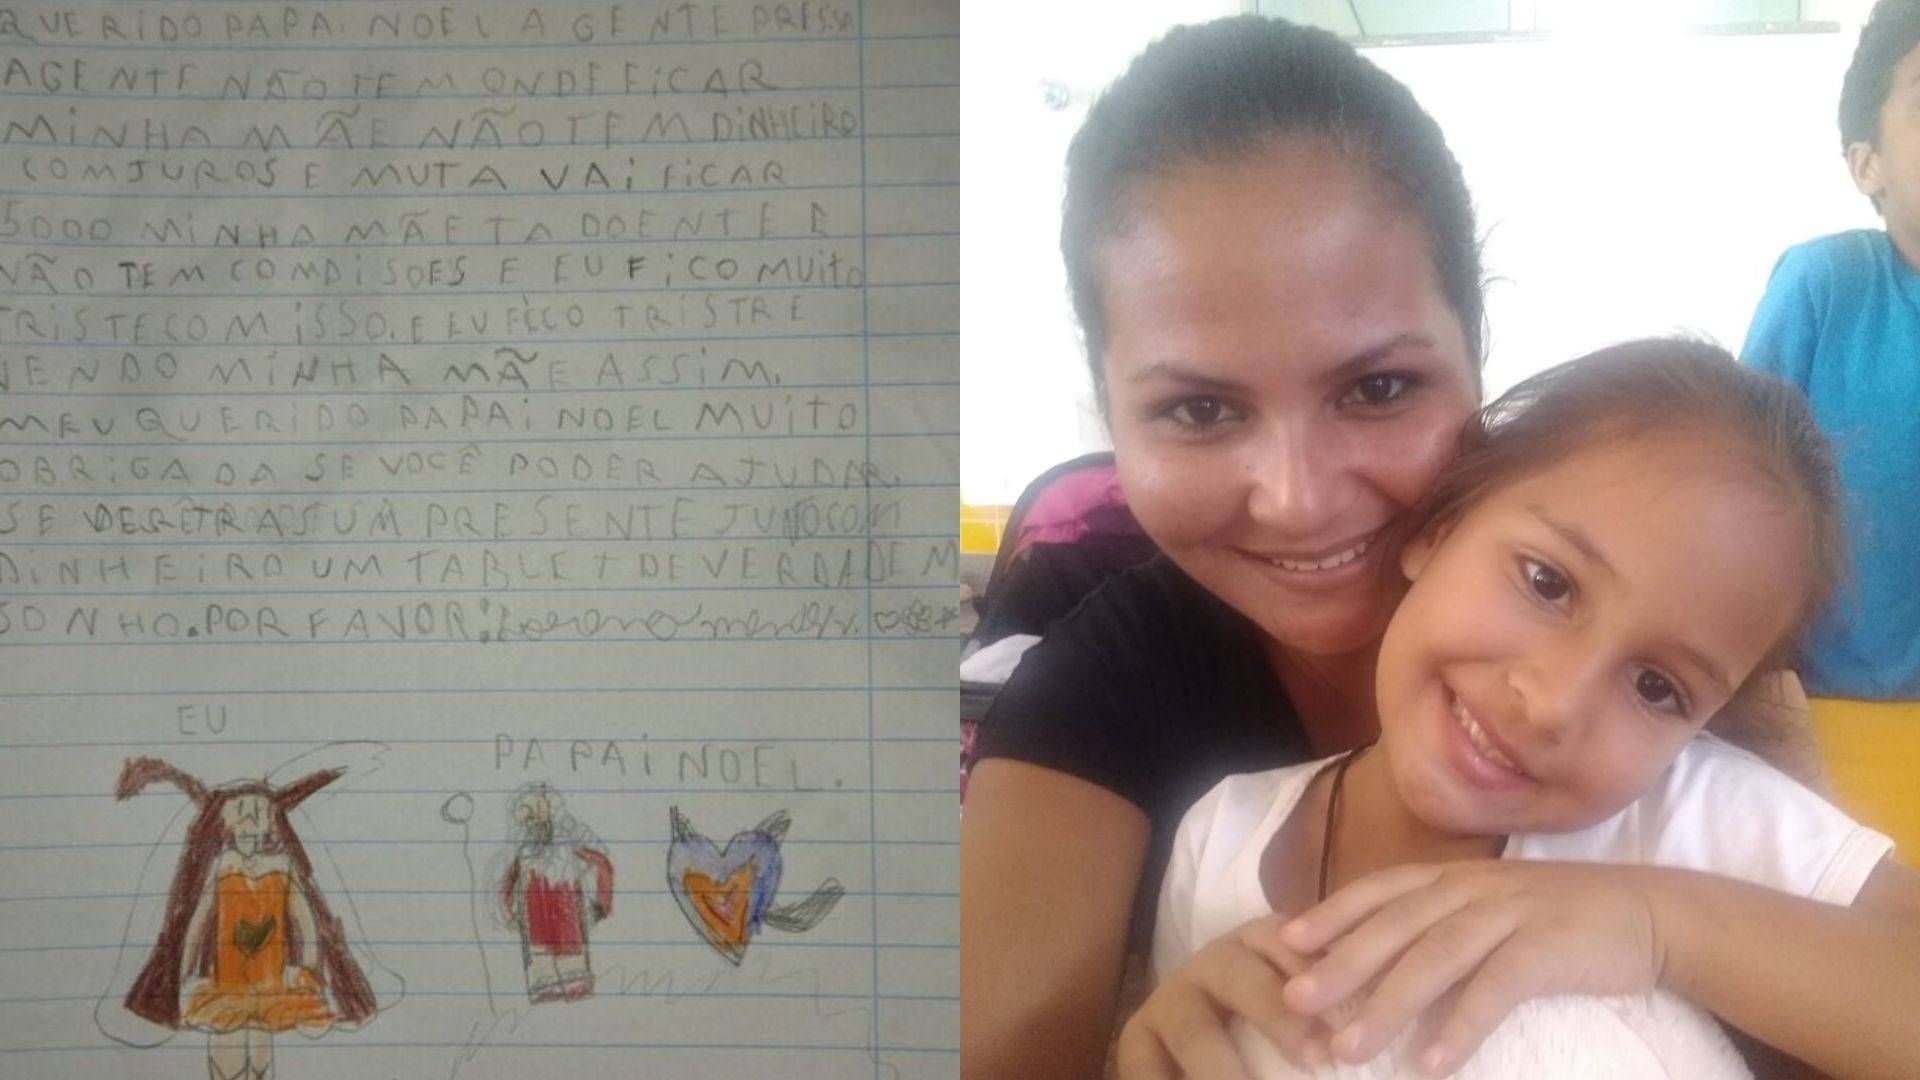 QUERIDO PAPAI NOEL A GENTE PRESSA
AGENTE NÃO TEM ONDE FICAR
MINHA MÃE NÃO TEM DINHEIRO
COMJUROS E MUTA VAI FICAR
5000 MINHA MÃE TA DOENTE E
NÃO TEM COMDISOES E EU FICO MUITO
TRISTE COM ISSO. E EU FICO TRISTRE
VENDO MINHA MÃE ASSIM.
MEU QUERIDO PAPAI NOEL MUITO
OBRIGADA SE VOCÊ PODER AJUDAR.
SE DER TRAS UM PRESENTE JUTO COM
DINHEIRO UM TABLET DE VERDADE M
SONHO. POR FAVOR!
EU
PAPAI NOEL.